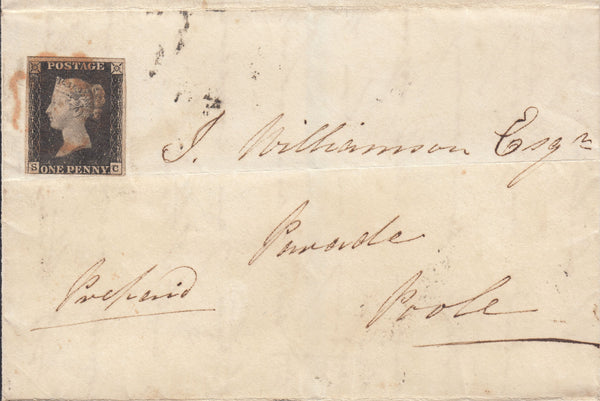 POSTAGE
S C
ONE PENNY
J. Williamson Esqr
Parade
Prepaid
Poole